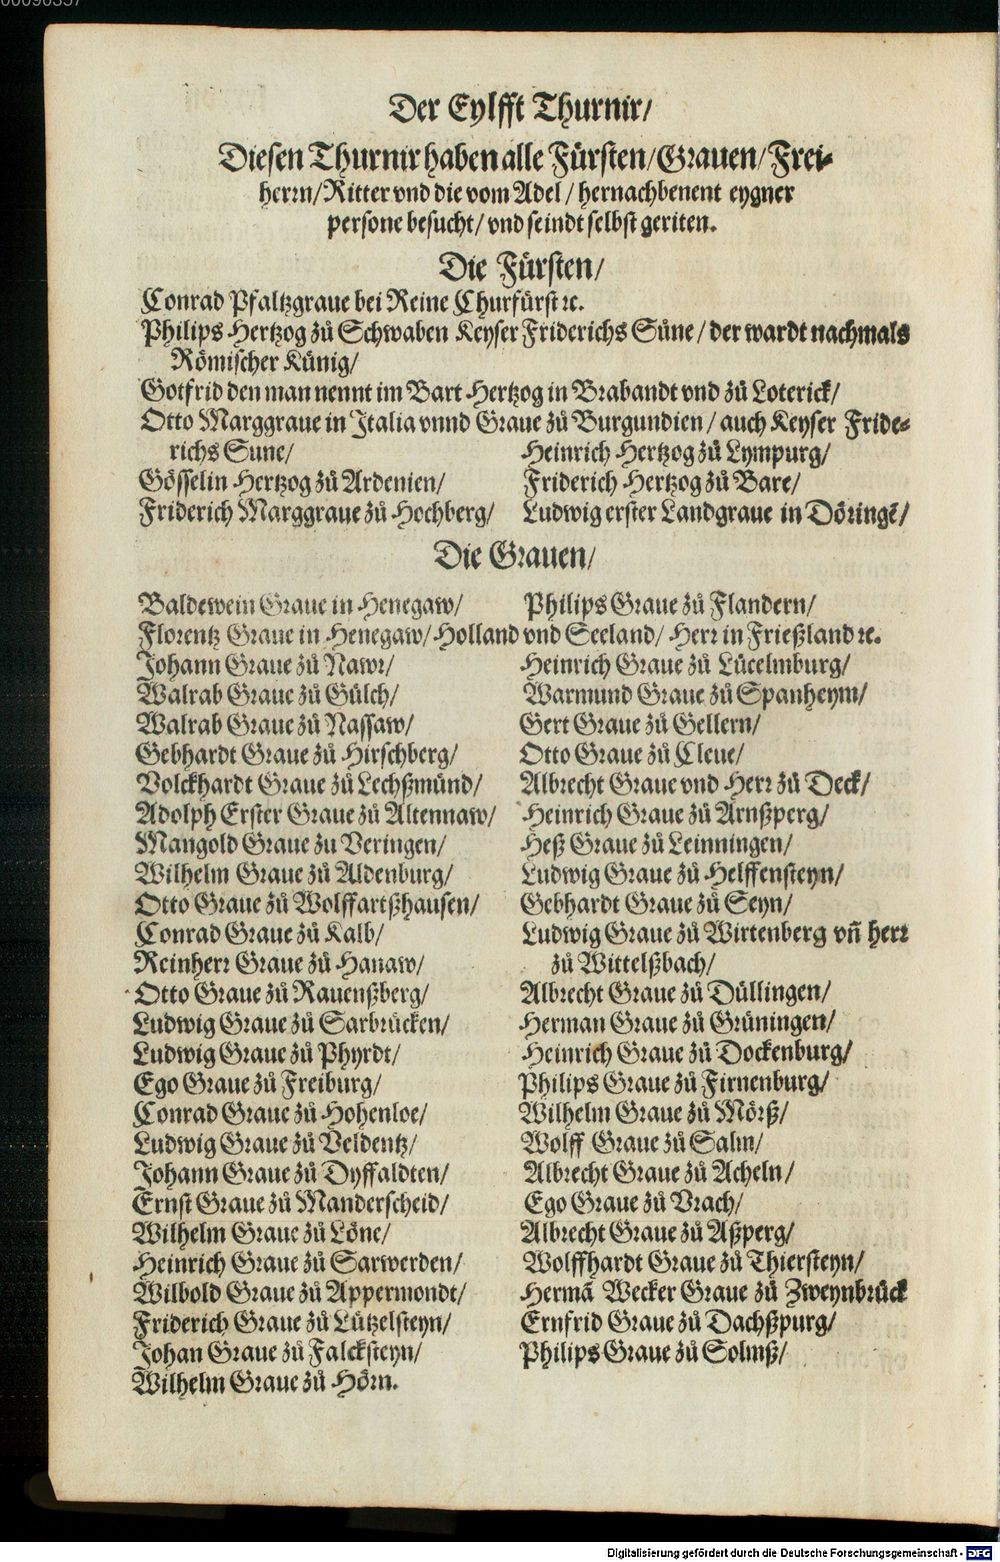 00090357
Der Eylfft Thurnir/
Diesen Thurnir haben alle Fürsten/Grauen/Frei-
herrn/Ritter vnd die vom Adel/ hernachbenent eygner
persone besucht/ vnd seindt selbst geriten.
Die Fürsten/
Conrad Pfaltzgraue bei Reine Churfürst ꝛc.
Philips Hertzog zů Schwaben Keyser Friderichs Süne/ der wardt nachmals
Römischer Künig/
Gotfrid den man nennt im Bart Hertzog in Brabandt vnd zů Loterick/
Otto Marggraue in Italia vnnd Graue zů Burgundien/ auch Keyser Fride-
richs Sune/
Gösselin Hertzog zů Ardenien/
Friderich Marggraue zů Hochberg/
Heinrich Hertzog zů Lympurg/
Friderich Hertzog zů Bare/
Ludwig erster Landgraue in Döringē/
Die Grauen/
Baldewein Graue in Henegaw/ Philips Graue zů Flandern/
Florentz Graue in Henegaw/ Holland vnd Seeland/ Herr in Frießland ꝛc.
Johann Graue zů Nawr/
Walrab Graue zů Gülch/
Walrab Graue zů Nassaw/
Gebhardt Graue zů Hirschberg/
Volckhardt Graue zů Lechßmünd/
Adolph Erster Graue zů Altennaw/
Mangold Graue zu Veringen/
Wilhelm Graue zů Aldenburg/
Otto Graue zů Wolffartßhausen/
Conrad Graue zů Kalb/
Reinherr Graue zů Hanaw/
Otto Graue zů Rauenßberg/
Ludwig Graue zů Sarbrücken/
Ludwig Graue zů Phyrdt/
Ego Graue zů Freiburg/
Conrad Graue zů Hohenloe/
Ludwig Graue zů Veldentz/
Johann Graue zů Dyffaldten/
Ernst Graue zů Manderscheid/
Wilhelm Graue zů Löne/
Heinrich Graue zů Sarwerden/
Wilbold Graue zů Appermondt/
Friderich Graue zů Lützelsteyn/
Johan Graue zů Falcksteyn/
Wilhelm Graue zů Hörn.
Heinrich Graue zů Lücelmburg/
Warmund Graue zů Spanheym/
Gert Graue zů Gellern/
Otto Graue zů Cleue/
Albrecht Graue vnd Herr zů Deck/
Heinrich Graue zů Arnßperg/
Heß Graue zů Leinningen/
Ludwig Graue zů Helffensteyn/
Gebhardt Graue zů Seyn/
Ludwig Graue zů Wirtenberg vn̄ herr
zů Wittelßbach/
Albrecht Graue zů Düllingen/
Herman Graue zů Grüningen/
Heinrich Graue zů Dockenburg/
Philips Graue zů Firnenburg/
Wilhelm Graue zů Mörß/
Wolff Graue zů Salm/
Albrecht Graue zů Acheln/
Ego Graue zů Vrach/
Albrecht Graue zů Aßperg/
Wolffhardt Graue zů Thiersteyn/
Hermā Wecker Graue zů Zweynbrück
Ernfrid Graue zů Dachßpurg/
Philips Graue zů Solmß/
Digitalisierung gefördert durch die Deutsche Forschungsgemeinschaft - DFG